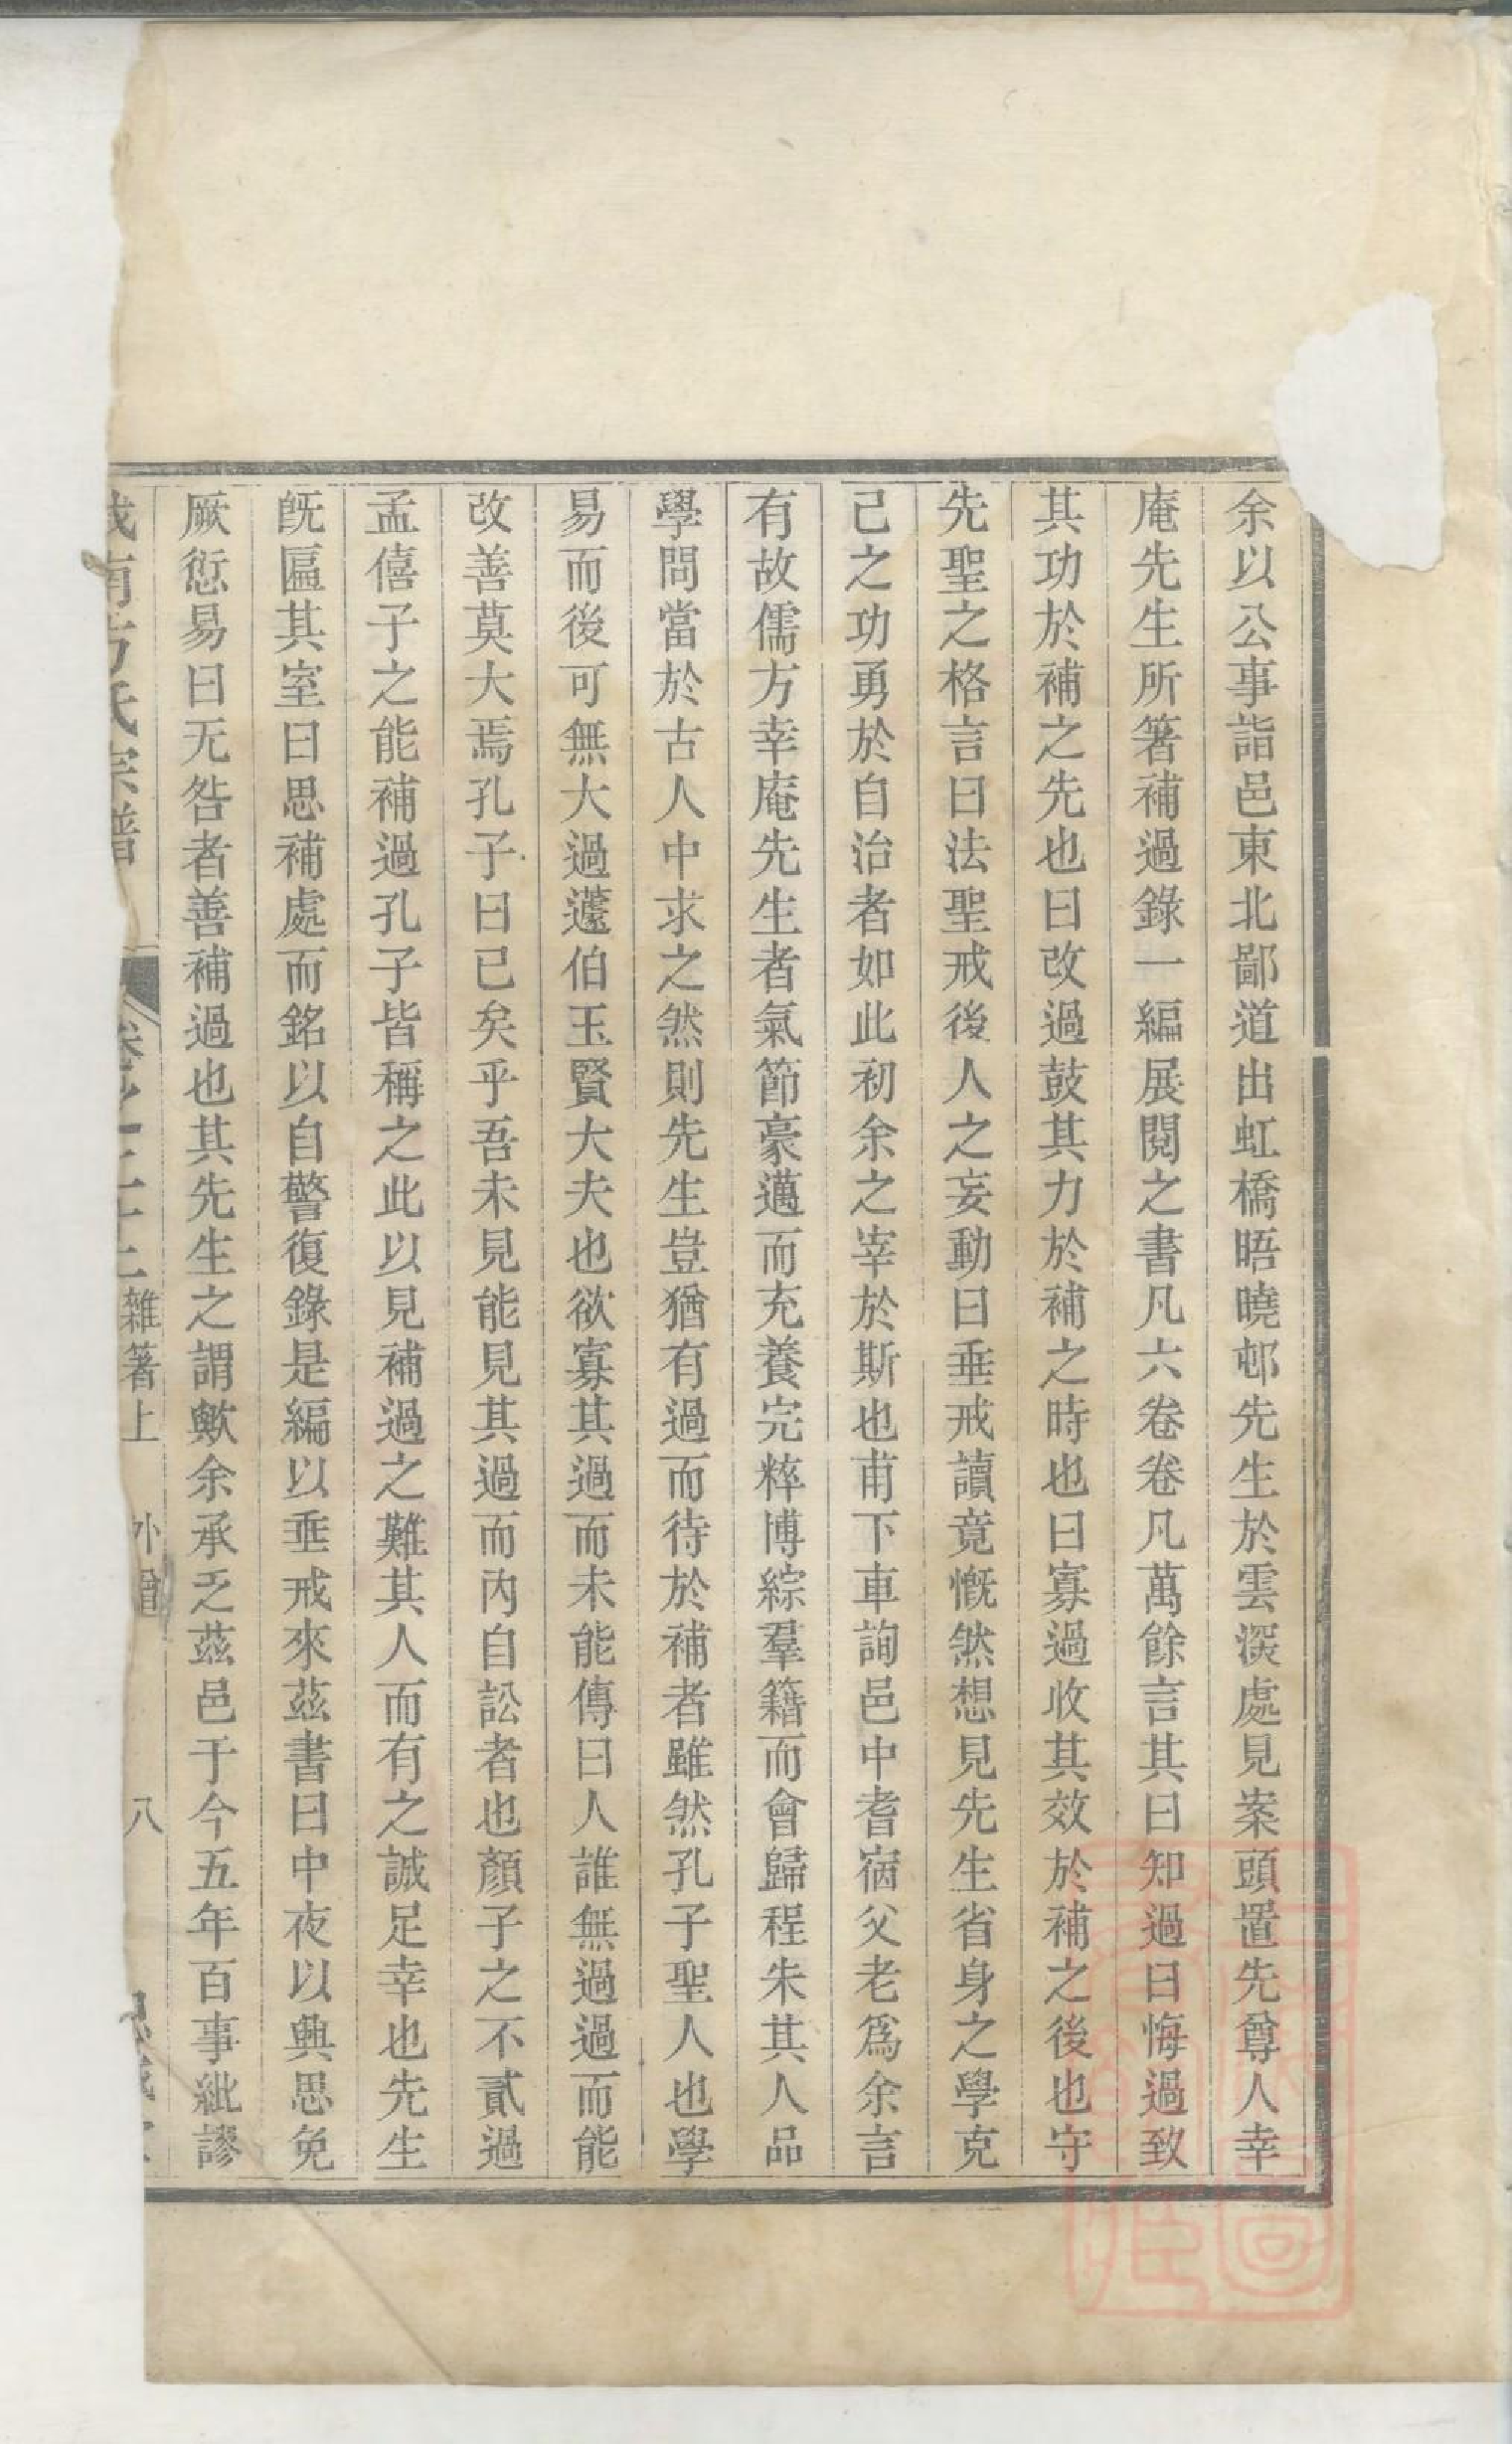 余以公事詣邑東北鄙道出虹橋晤曉邨先生於雲深處見案頭置先尊人幸
庵先生所箸補過錄一編展閱之書凡六卷卷凡萬餘言其曰知過曰悔過致
其功於補之先也曰改過鼓其力於補之時也曰寡過收其效於補之後也守
先聖之格言曰法聖戒後人之妄動曰垂戒讀竟慨然想見先生省身之學克
己之功勇於自治者如此初余之宰於斯也甫下車詢邑中耆宿父老爲余言
有故儒方幸庵先生者氣節豪邁而充養完粹博綜羣籍而會歸程朱其人品
學問當於古人中求之然則先生豈猶有過而待於補者雖然孔子聖人也學
易而後可無大過蘧伯玉賢大夫也欲寡其過而未能傳曰人誰無過過而能
改善莫大焉孔子曰已矣乎吾未見能見其過而內自訟者也顏子之不貳過
孟僖子之能補過孔子皆稱之此以見補過之難其人而有之誠足幸也先生
旣匾其室曰思補處而銘以自警復錄是編以垂戒來茲書曰中夜以興思免
厥愆易曰无咎者善補過也其先生之謂歟余承乏茲邑于今五年百事紕謬
南方氏宗譜 卷之二十上 雜箸上 外 八